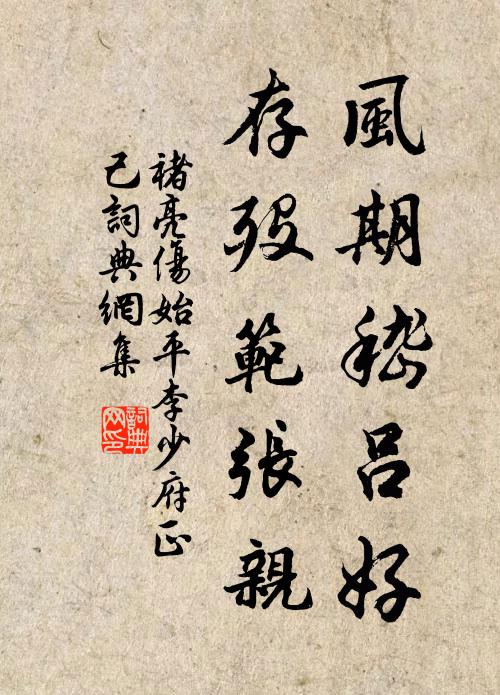 風期嵇呂好
存歿範張親
褚亮傷始平李少府正
己詞典網集
詞典网印